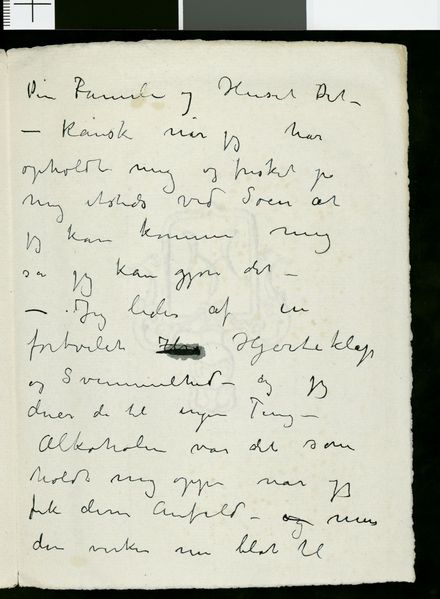 Din Familie og Huset Det –
– kanske når jeg har
opholdt mig og frisket på
mig etsteds ved Søen at
jeg kan komme mig
så jeg kan gjøre det –
– Jeg lider af en
fortvilet Hjerteklap
og Svimmelhed – og jeg
duer da til ingen Ting –
Alkoholen var det som
holdt mig oppe når jeg
fik disse Anfald – og men
den virker nu blot til